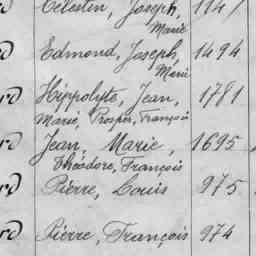 Célestin, Joseph, 1147
Marie
rd Edmond, Joseph, 1494
Marie
rd Hippolyte, Jean, 1781
Marie, Prosper, François
rd Jean, Marie, 1695
Théodore, François
rd Pierre, Louis 975
rd Pierre, François 974